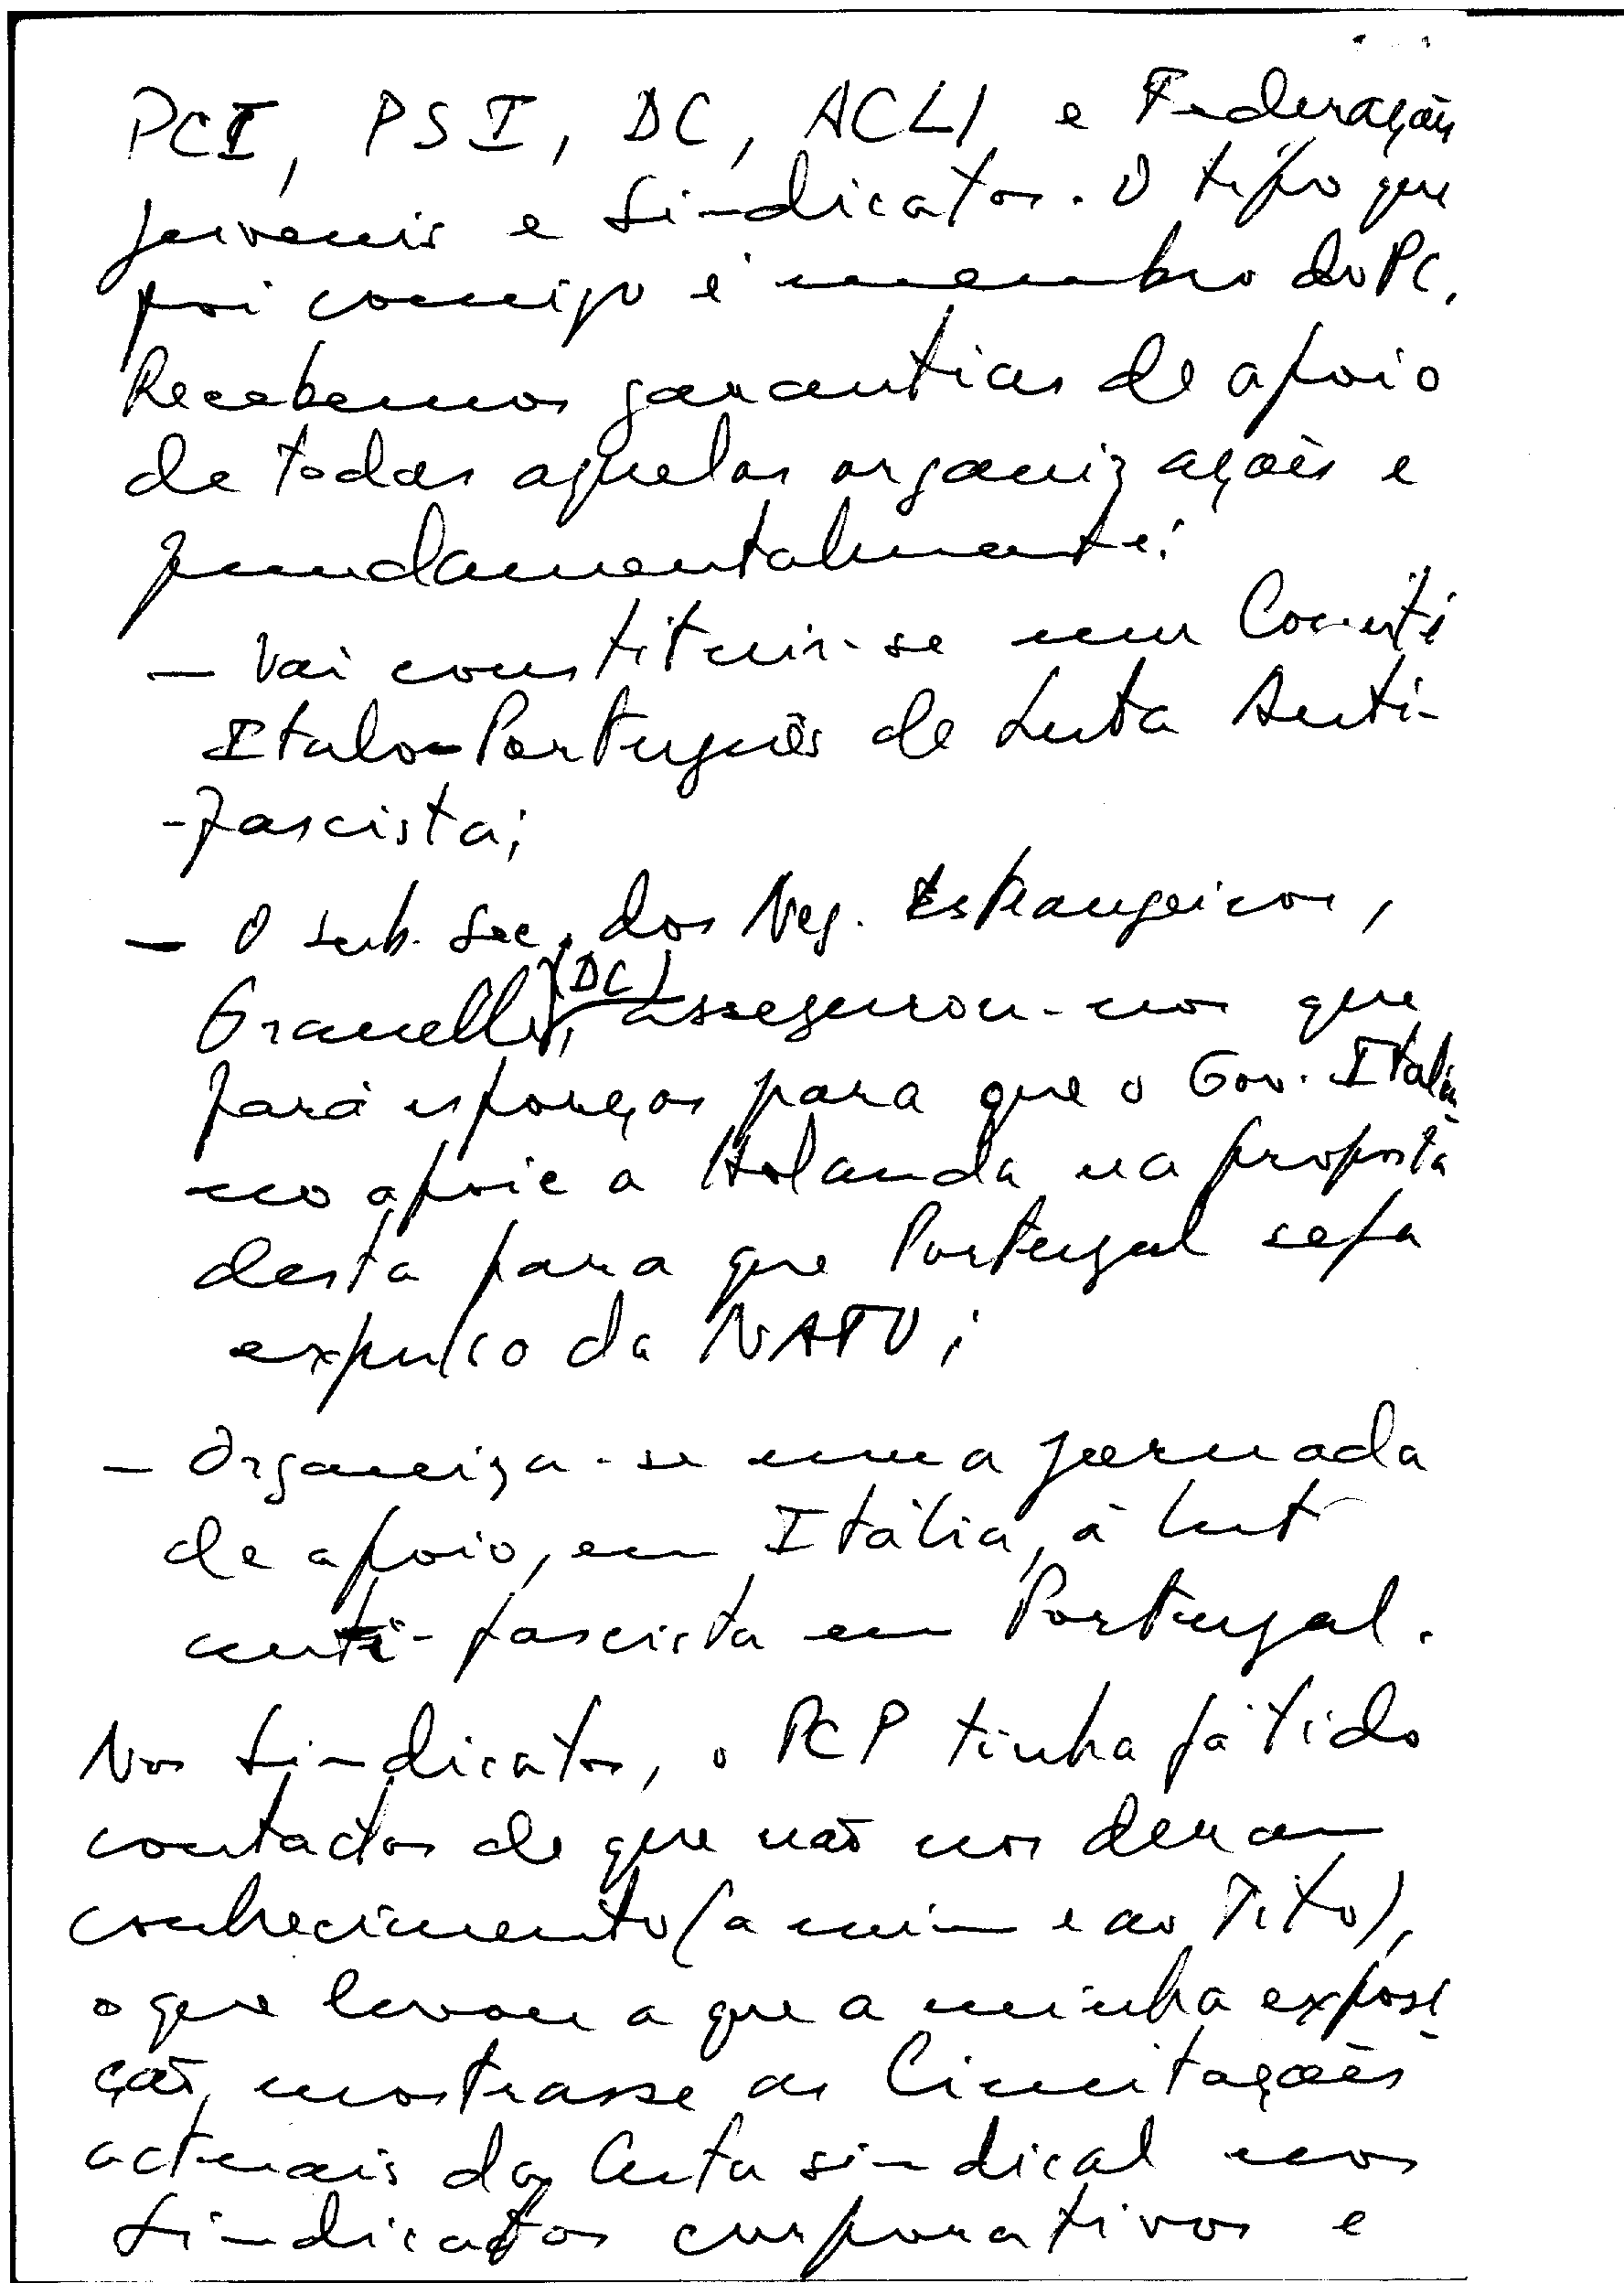 PCI, PSI, DC, ACLI e Federações
juvenis e Sindicatos. O tipo que
foi comigo é membro do PC.
Recebemos garantias de apoio
de todas aquelas organizações e
fundamentalmente:
— Vai constituir-se um Comité
Italo-Português de Luta Anti-
-fascista;
— O sub. Sec. dos Neg. Estrangeiros,
Granelli (DC), assegurou-nos que
fará esforços para que o Gov. Italia
no apoie a Holanda na proposta
desta para que Portugal seja
expulso da NATO;
— Organiza-se uma jornada
de apoio, em Itália, à luta
anti-fascista em Portugal.
Nos Sindicatos, o PCP tinha já tido
contactos de que não nos deram
conhecimento (a mim e ao Tito),
o que levou a que a minha exposi
ção, mostrasse as limitações
actuais da luta sindical nos
Sindicatos corporativos e